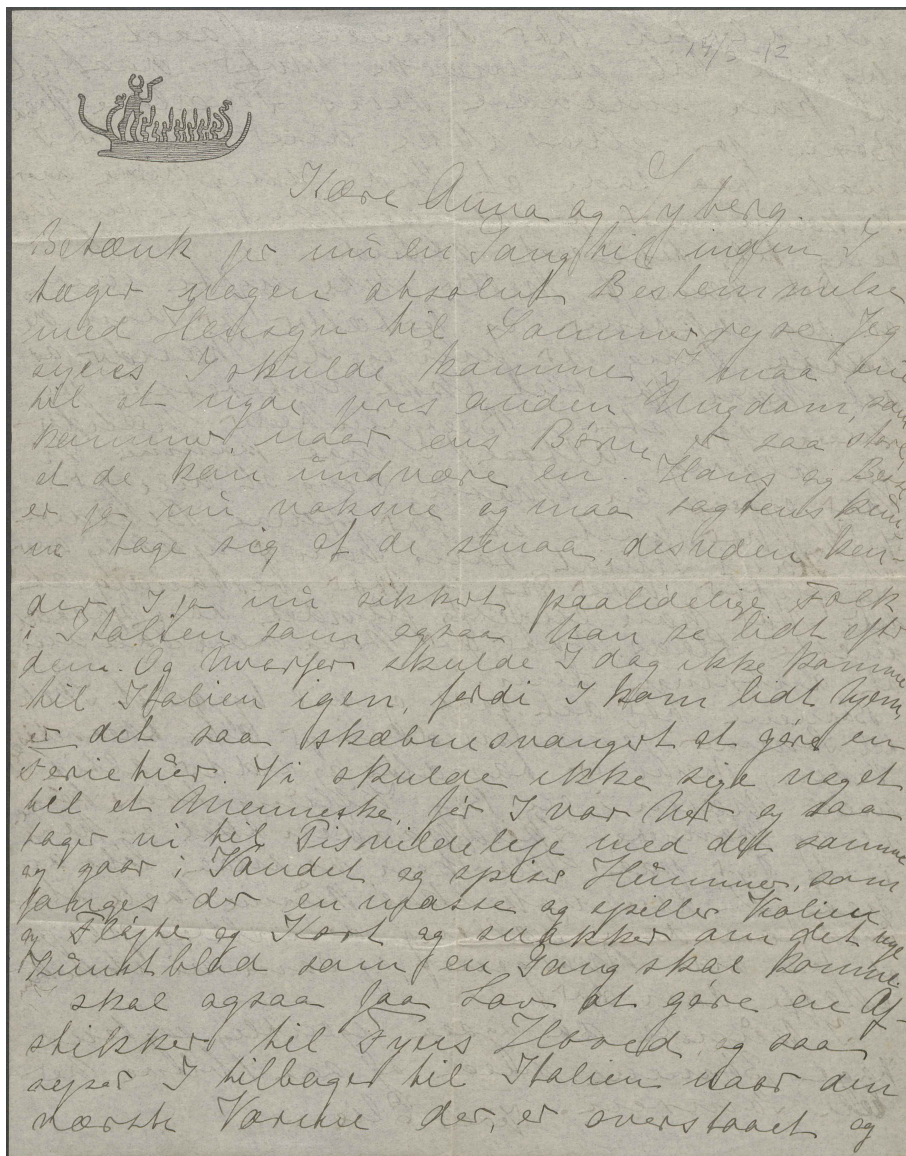 Kære Anna og Syberg.
Betænk jer nu en Gang til inden I
tager nogen absolut Bestemmelse
med Hensyn til Sommerrejse Jeg
synes I skulde komme. I maa
til at nyde jeres anden Ungdom, som
kommer naar ens Børn er saa store,
at de kan undvære en. Hans og
er jo nu voksne og maa sagtens kun-
ne tage sig af de smaa, desuden ken-
der I jo nu sikkert paalidelige Folk
i Italien som ogsaa kan se lidt efter
dem. Og hvorfor skulde I dog ikke komme
til Italien igen, fordi I kom lidt hjem,
er det saa skæbnesvangert at gøre en
Ferietur. Vi skulde ikke sige noget
til et Menneske, før I var her og saa
tager vi til Tisvildeleje med det samme
og gaar i Vandet og spiser Hummer, som
fanges der en masse og spiller Violin
og Fløjte og Kort og snakker om det nye
Kunstblad som en Gang skal komme.
skal ogsaa faa Lov at gøre en Af-
stikker til Fyns Hoved og saa
rejser I tilbage til Italien naar den
værste Varme der, er overstaaet og